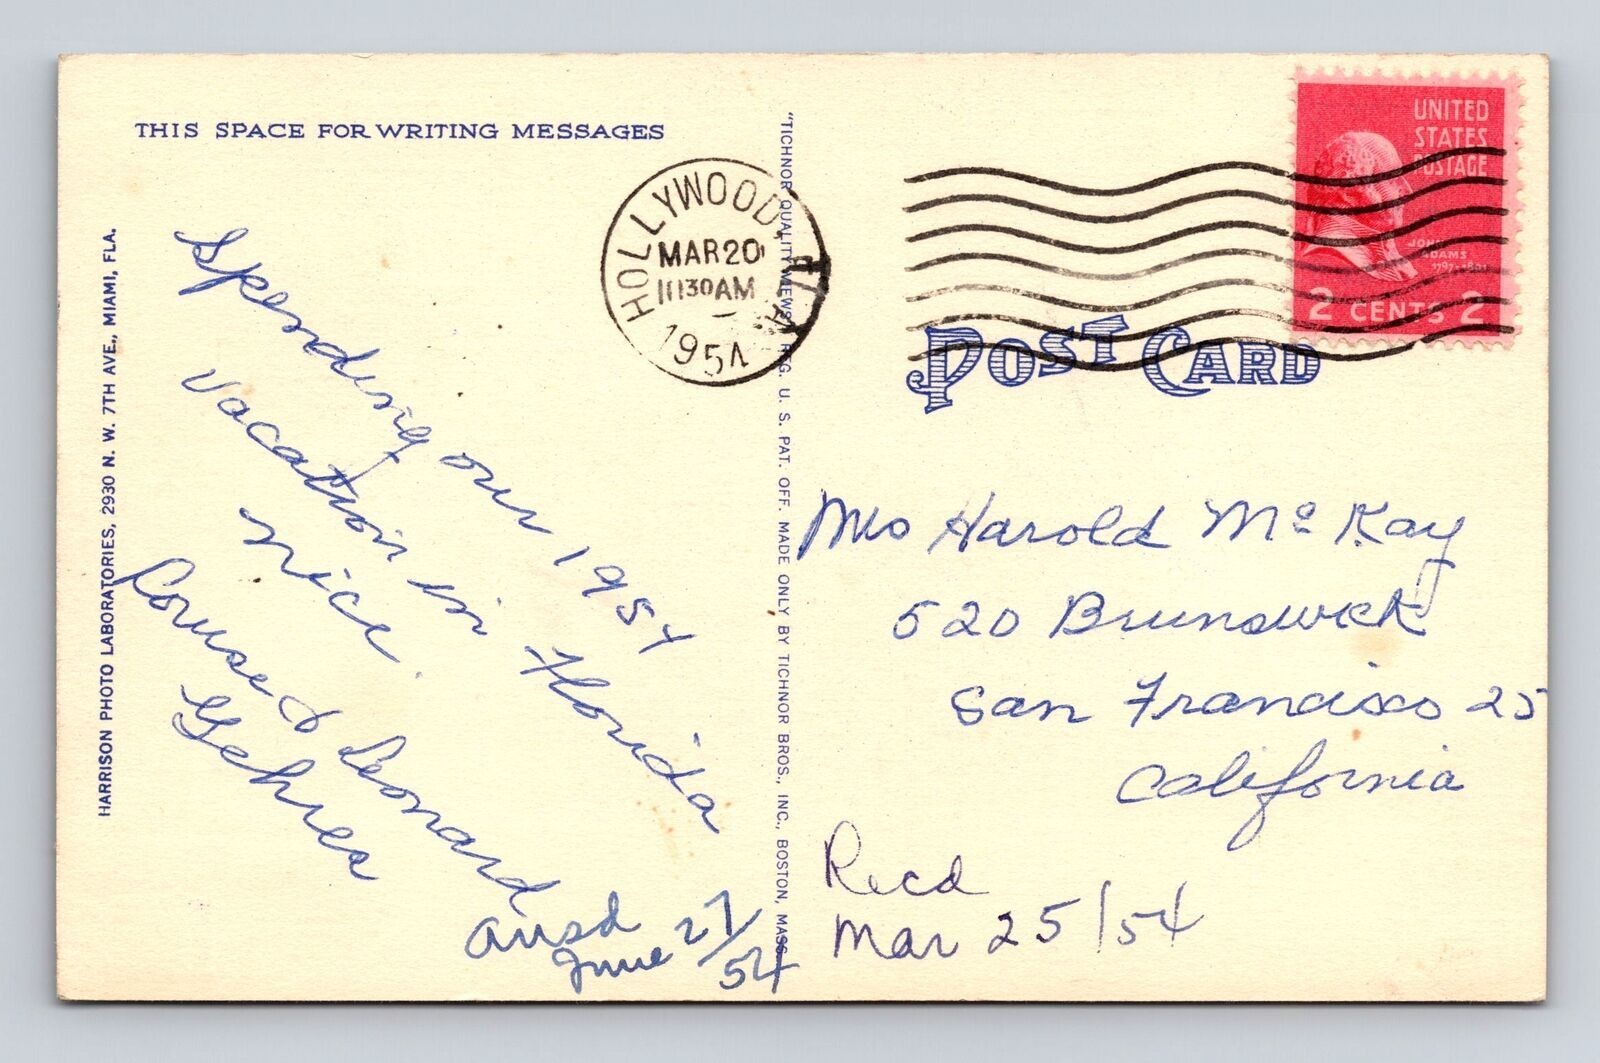 THIS SPACE FOR WRITING MESSAGES
HARRISON PHOTO LABORATORIES, 2930 N. W. 7TH AVE., MIAMI, FLA.
Spending our 1954
Vacation in Florida
Nice.
Louise & Leonard
Ansd
June 27/54
"TICHNOR QUALITY VIEWS," REG. U. S. PAT. OFF. MADE ONLY BY TICHNOR BROS., INC., BOSTON, MASS.
HOLLYWOOD, FLA
MAR 20
1130 AM
1954
UNITED
STATES
POSTAGE
JOHN
ADAMS
1797-1801
2 CENTS 2
POST CARD
Mrs Harold Mc Kay
520 Brunswick
San Francisco 25
California
Recd
Mar 25/54